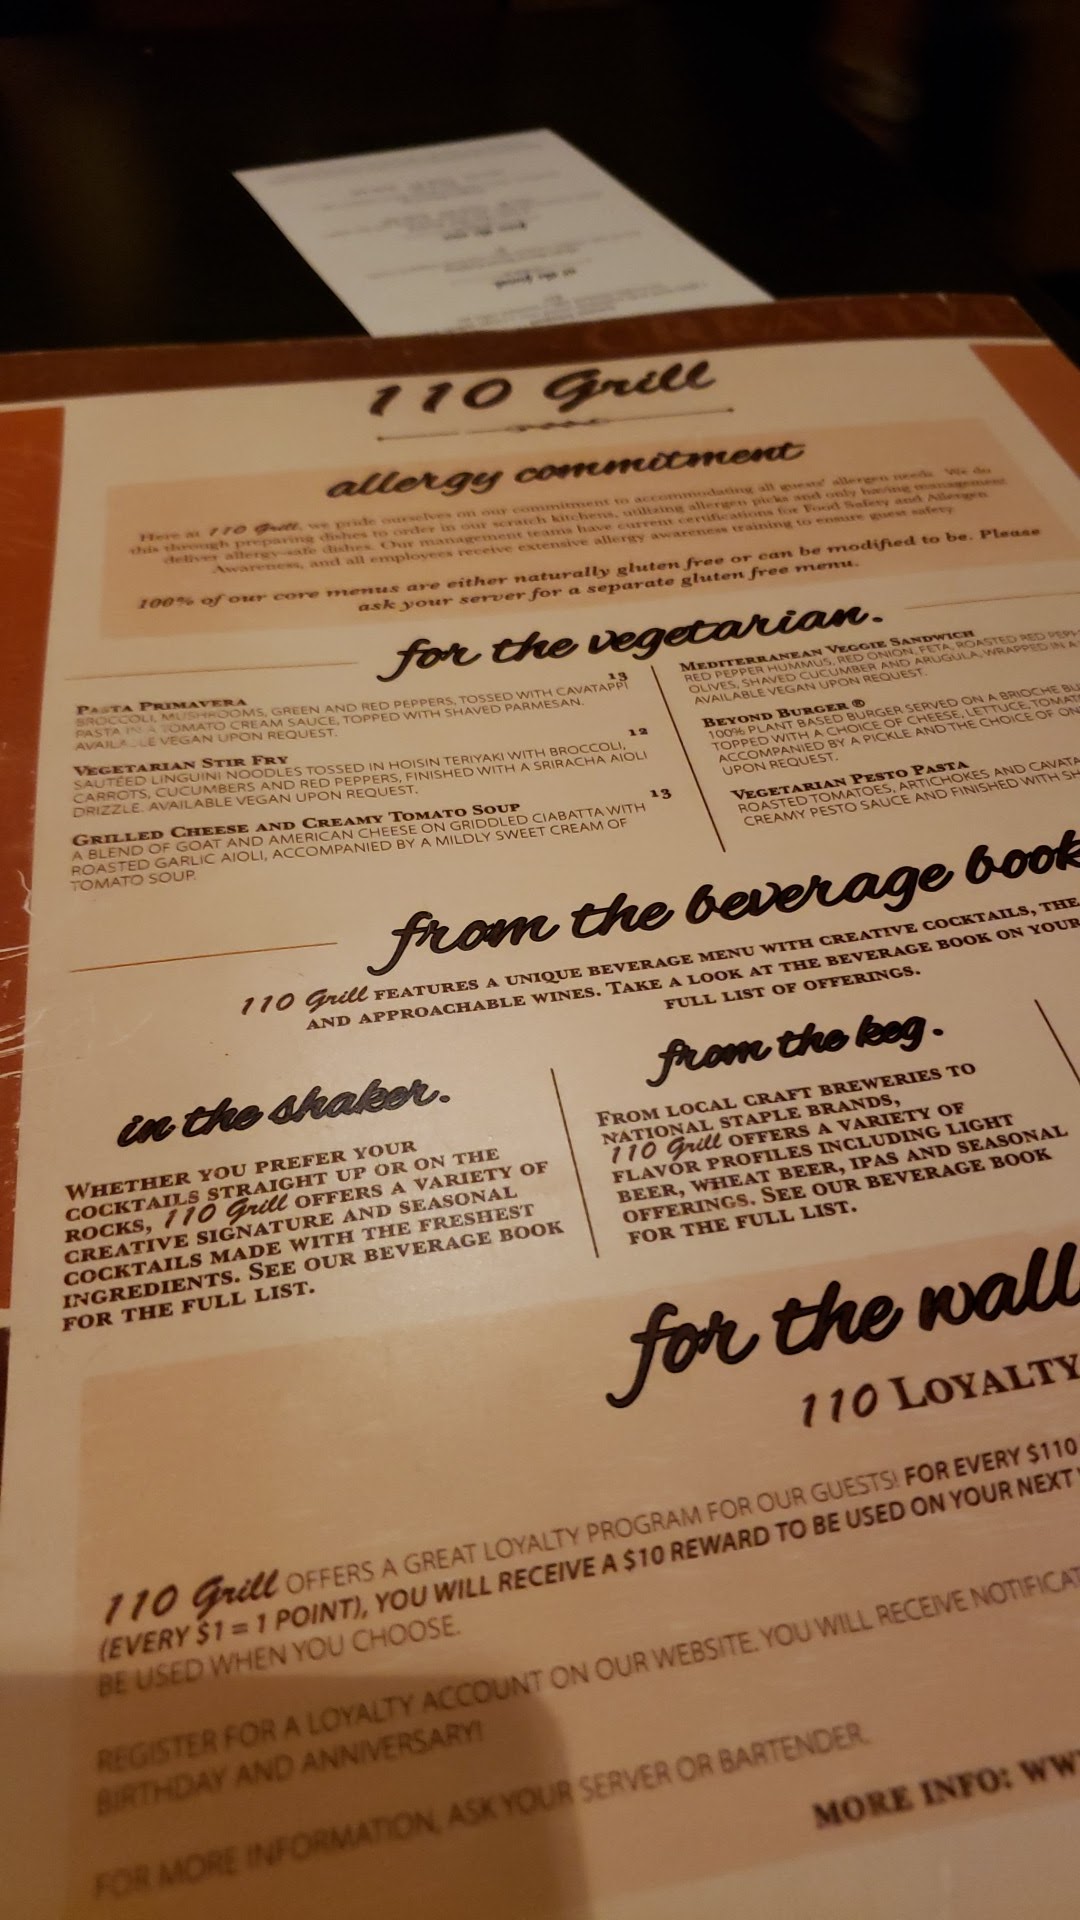 110 Grill
allergy commitment
Here at 110 Grill, we pride ourselves on our commitment to accommodating all guests' allergen needs. We do
this through preparing dishes to order in our scratch kitchens, utilizing allergen picks and only having management
deliver allergy-safe dishes. Our management teams have current certifications for Food Safety and Allergen
Awareness, and all employees receive extensive allergy awareness training to ensure guest safety.
100% of our core menus are either naturally gluten free or can be modified to be. Please
ask your server for a separate gluten free menu.
for the vegetarian.
PASTA PRIMAVERA 13
BROCCOLI, MUSHROOMS, GREEN AND RED PEPPERS, TOSSED WITH CAVATAPPI
PASTA IN A TOMATO CREAM SAUCE, TOPPED WITH SHAVED PARMESAN.
AVAILABLE VEGAN UPON REQUEST.
VEGETARIAN STIR FRY 12
SAUTÉED LINGUINI NOODLES TOSSED IN HOISIN TERIYAKI WITH BROCCOLI,
CARROTS, CUCUMBERS AND RED PEPPERS, FINISHED WITH A SRIRACHA AIOLI
DRIZZLE. AVAILABLE VEGAN UPON REQUEST.
GRILLED CHEESE AND CREAMY TOMATO SOUP 13
A BLEND OF GOAT AND AMERICAN CHEESE ON GRIDDLED CIABATTA WITH
ROASTED GARLIC AIOLI, ACCOMPANIED BY A MILDLY SWEET CREAM OF
TOMATO SOUP.
MEDITERRANEAN VEGGIE SANDWICH
RED PEPPER HUMMUS, RED ONION, FETA, ROASTED RED
OLIVES, SHAVED CUCUMBER AND ARUGULA, WRAPPED IN A
AVAILABLE VEGAN UPON REQUEST.
BEYOND BURGER ®
100% PLANT BASED BURGER SERVED ON A BRIOCHE
TOPPED WITH A CHOICE OF CHEESE, LETTUCE,
ACCOMPANIED BY A PICKLE AND THE CHOICE OF
UPON REQUEST.
VEGETARIAN PESTO PASTA
ROASTED TOMATOES, ARTICHOKES AND
CREAMY PESTO SAUCE AND FINISHED WITH
from the beverage book
110 Grill FEATURES A UNIQUE BEVERAGE MENU WITH CREATIVE COCKTAILS, THE
AND APPROACHABLE WINES. TAKE A LOOK AT THE BEVERAGE BOOK ON YOUR
FULL LIST OF OFFERINGS.
in the shaker.
WHETHER YOU PREFER YOUR
COCKTAILS STRAIGHT UP OR ON THE
ROCKS, 110 Grill OFFERS A VARIETY OF
CREATIVE SIGNATURE AND SEASONAL
COCKTAILS MADE WITH THE FRESHEST
INGREDIENTS. SEE OUR BEVERAGE BOOK
FOR THE FULL LIST.
from the keg.
FROM LOCAL CRAFT BREWERIES TO
NATIONAL STAPLE BRANDS,
110 Grill OFFERS A VARIETY OF
FLAVOR PROFILES INCLUDING LIGHT
BEER, WHEAT BEER, IPAS AND SEASONAL
OFFERINGS. SEE OUR BEVERAGE BOOK
FOR THE FULL LIST.
for the wall
110 LOYALTY
110 Grill OFFERS A GREAT LOYALTY PROGRAM FOR OUR GUESTS! FOR EVERY $110
(EVERY $1 = 1 POINT), YOU WILL RECEIVE A $10 REWARD TO BE USED ON YOUR NEXT
BE USED WHEN YOU CHOOSE.
REGISTER FOR A LOYALTY ACCOUNT ON OUR WEBSITE. YOU WILL RECEIVE
BIRTHDAY AND ANNIVERSARY!
FOR MORE INFORMATION, ASK YOUR SERVER OR BARTENDER.
MORE INFO: